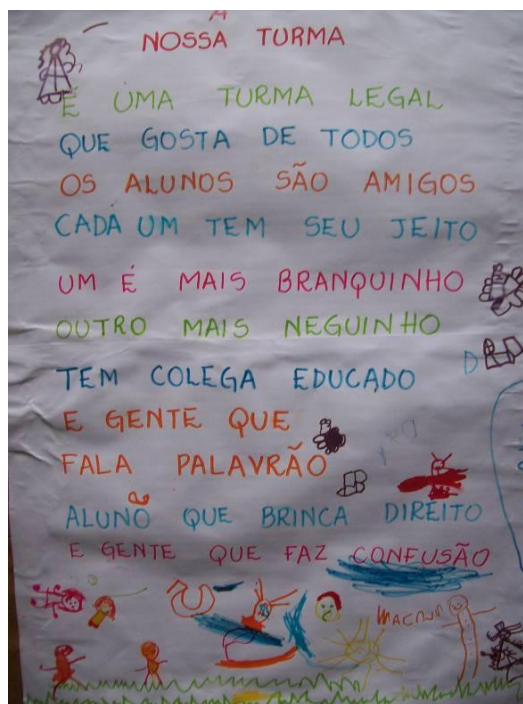 NOSSA TURMA
É UMA TURMA LEGAL
QUE GOSTA DE TODOS
OS ALUNOS SÃO AMIGOS
CADA UM TEM SEU JEITO
UM É MAIS BRANQUINHO
OUTRO MAIS NEGUINHO
TEM COLEGA EDUCADO
E GENTE QUE
FALA PALAVRÃO
ALUNO QUE BRINCA DIREITO
E GENTE QUE FAZ CONFUSÃO